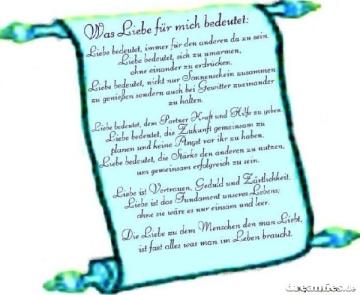 Was Liebe für mich bedeutet:
Liebe bedeutet, immer für den anderen da zu sein.
Liebe bedeutet, sich zu umarmen,
ohne einander zu erdrücken.
Liebe bedeutet, nicht nur Sonnenschein zusammen
zu genießen sondern auch bei Gewitter zueinander
zu halten.
Liebe bedeutet, dem Partner Kraft und Hilfe zu geben.
Liebe bedeutet, die Zukunft gemeinsam zu
planen und keine Angst vor ihr zu haben.
Liebe bedeutet, die Stärke des anderen zu nutzen,
um gemeinsam erfolgreich zu sein.
Liebe ist Vertrauen, Geduld und Zärtlichkeit.
Liebe ist das Fundament unseres Lebens;
ohne sie wäre es nur einsam und leer.
Die Liebe zu dem Menschen den man Liebt,
ist fast alles was man im Leben braucht.
dreamies.de